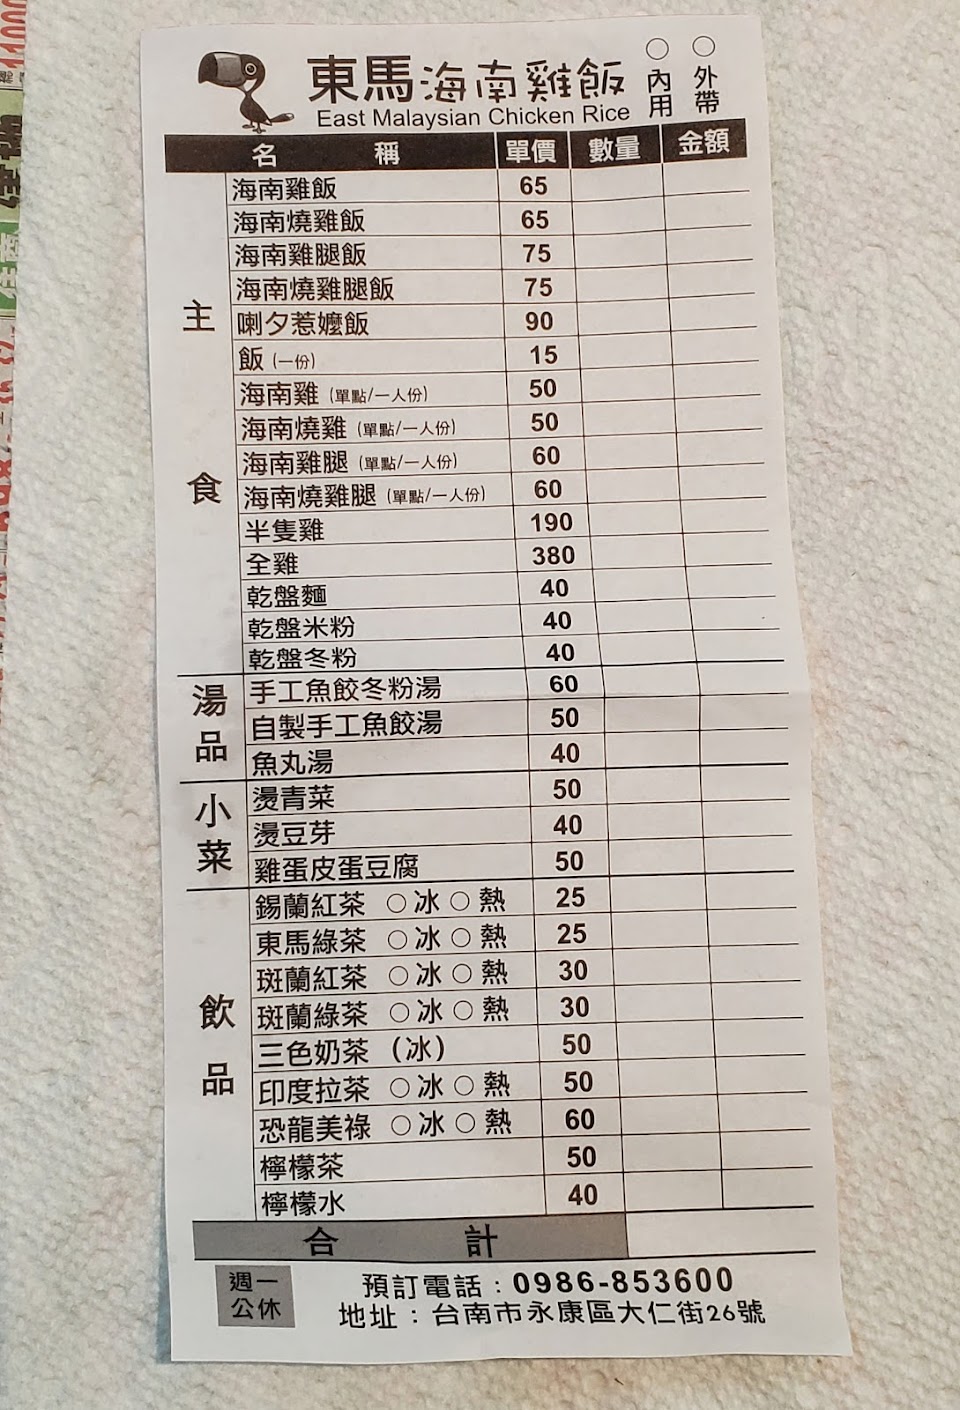 東馬海南雞飯
East Malaysian Chicken Rice
○內用 ○外帶
名稱 單價 數量 金額
主食
海南雞飯 65
海南燒雞飯 65
海南雞腿飯 75
海南燒雞腿飯 75
喇夕惹嬤飯 90
飯 (一份) 15
海南雞 (單點/一人份) 50
海南燒雞 (單點/一人份) 50
海南雞腿 (單點/一人份) 60
海南燒雞腿 (單點/一人份) 60
半隻雞 190
全雞 380
乾盤麵 40
乾盤米粉 40
乾盤冬粉 40
湯品
手工魚餃冬粉湯 60
自製手工魚餃湯 50
魚丸湯 40
小菜
燙青菜 50
燙豆芽 40
雞蛋皮蛋豆腐 50
飲品
錫蘭紅茶 ○冰○熱 25
東馬綠茶 ○冰○熱 25
斑蘭紅茶 ○冰○熱 30
斑蘭綠茶 ○冰○熱 30
三色奶茶 (冰) 50
印度拉茶 ○冰○熱 50
恐龍美祿 ○冰○熱 60
檸檬茶 50
檸檬水 40
合計
週一公休
預訂電話：0986-853600
地址：台南市永康區大仁街26號